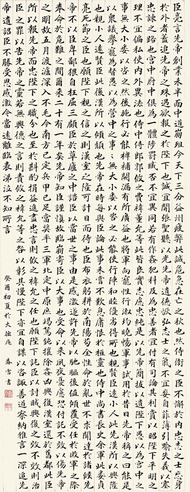 臣亮言先帝創業未半而中道崩殂今天下三分益州疲弊此誠危急存亡之秋也然侍衛之臣不懈於內忠志之士忘身
於外者蓋追先帝之殊遇欲報之於陛下也誠宜開張聖聽以光先帝遺德恢弘志士之氣不宜妄自菲薄引喻失義以塞
忠諫之路也宮中府中俱為一體陟罰臧否不宜異同若有作奸犯科及為忠善者宜付有司論其刑賞以昭陛下平明之
理不宜偏私使內外異法也侍中侍郎郭攸之費禕董允等此皆良實志慮忠純是以先帝簡拔以遺陛下愚以為宮中之
事無大小悉以咨之然後施行必能裨補闕漏有所廣益將軍向寵性行淑均曉暢軍事試用於昔日先帝稱之曰能是
以眾議舉寵為督愚以為營中之事悉以咨之必能使行陣和睦優劣得所也親賢臣遠小人此先漢所以興隆也親小人
遠賢臣此後漢所以傾頹也先帝在時每與臣論此事未嘗不歎息痛恨於桓靈也侍中尚書長史參軍此悉貞
亮死節之臣也陛下親之信之則漢室之隆可計日而待也臣本布衣躬耕南陽苟全性命於亂世不求聞達於諸侯先
帝不以臣卑鄙猥自枉屈三顧臣於草廬之中諮臣以當世之事由是感激遂許先帝以驅馳後值傾覆受任於敗軍之際
奉命於危難之間爾來二十有一年矣先帝知臣謹慎故臨崩寄臣以大事也受命以來夙夜憂慮恐付託不效以傷先帝
之明故五月渡瀘深入不毛今南方已定兵甲已足當獎帥三軍北定中原庶竭駑鈍攘除姦凶興復漢室還於舊都此臣
所以報先帝而忠陛下之職分也至於斟酌損益進盡忠言則攸之禕允之任也願陛下託臣以討賊興復之效不效則治
臣之罪以告先帝之靈若無興德之言則責攸之禕允等之慢以彰其咎陛下亦宜自謀以諮諏善道察納雅言深追先
帝遺詔臣不勝受恩感激今當遠離臨表涕泣不知所言
癸酉初夏